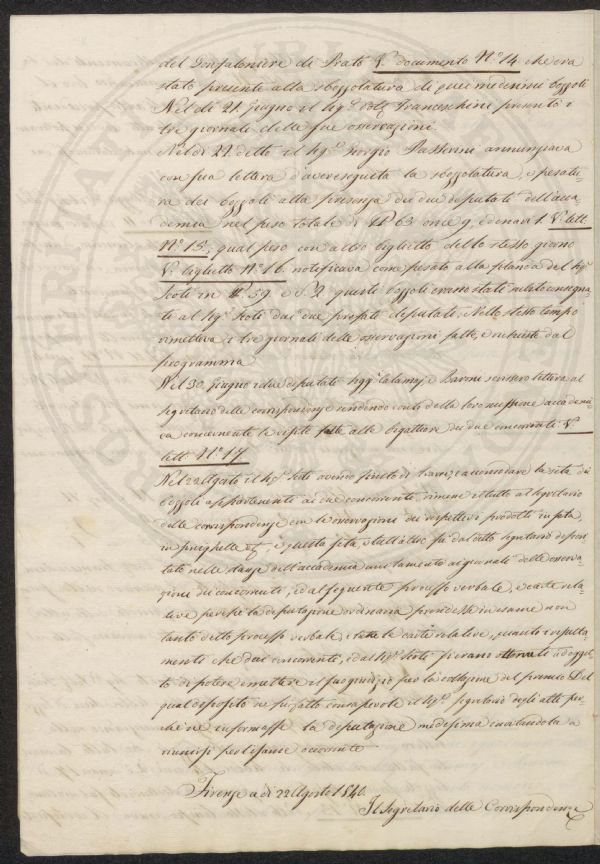 del Gonfaloniere di Prato V. documento N.° 14. che era
stato presente alla sbozzolatura di quei medesimi bozzoli
Nel dì 21. Giugno il Sig.r Franceschini presentò i
tre giornali delle sue osservazioni.
Nel dì 22 detto il Sig.r Giorgio Passerini annunziava
con sua lettera d'aver eseguita la sbozzolatura, e pesatu-
ra dei bozzoli alla presenza dei due deputati dell'acca
demia nel peso totale di 63 once 9. e denari 1. V. lett.
N.° 15., qual peso con altro biglietto dello stesso giorno
V. biglietto N.° 16. notificava come pesato alla del Sig.r
Scoti in 59. e questi bozzoli erano stati consegna
ti al Sig.r Scoti dai due prefati deputati. Nello stesso tempo
rimetteva i tre giornali delle osservazioni fatte, e richieste dal
programma
Nel 30. Giugno i due deputati Sigg.ri Calamai, e Baroni scrissero lettera al
Segretario delle corrispondenze rendendo conto della loro missione accademi-
ca concernente le visite fatte alle bigattiere dei due concorrenti V.
lett. N.° 17.
Nel 22 Agosto il Sig.r Scoti avendo finito di trarre, e accomodare la seta dei
bozzoli appartenente ai due concorrenti, rimesse il tutto al Segretario
delle corrispondenze con le osservazioni dei respettivi prodotti in seta,
in e questa seta, e tutt'altro fu dal detto Segretario deposi
tato nelle stanze dell'accademia unitamente ai giornali delle osserva-
zioni dei concorrenti, ed al seguente processo verbale, e carte rela-
tive perché la deputazione ordinaria prendesse in esame non
tanto detto processo verbale, e tutte le carte relative, quanto i resulta-
menti che dai concorrenti, e dal Sig.r Scoti si erano ottenuti ad ogget
to di potere emettere il suo giudizio per la collazione del premio. Del
qual disposto ne fu fatto consapevole il Sig.r Segretario degli atti per-
chè ne informasse la deputazione medesima invitandola a
riunirsi per l'esame occorrente
Firenze a dì 22 Agosto 1840.
Il Segretario delle Corrispondenze